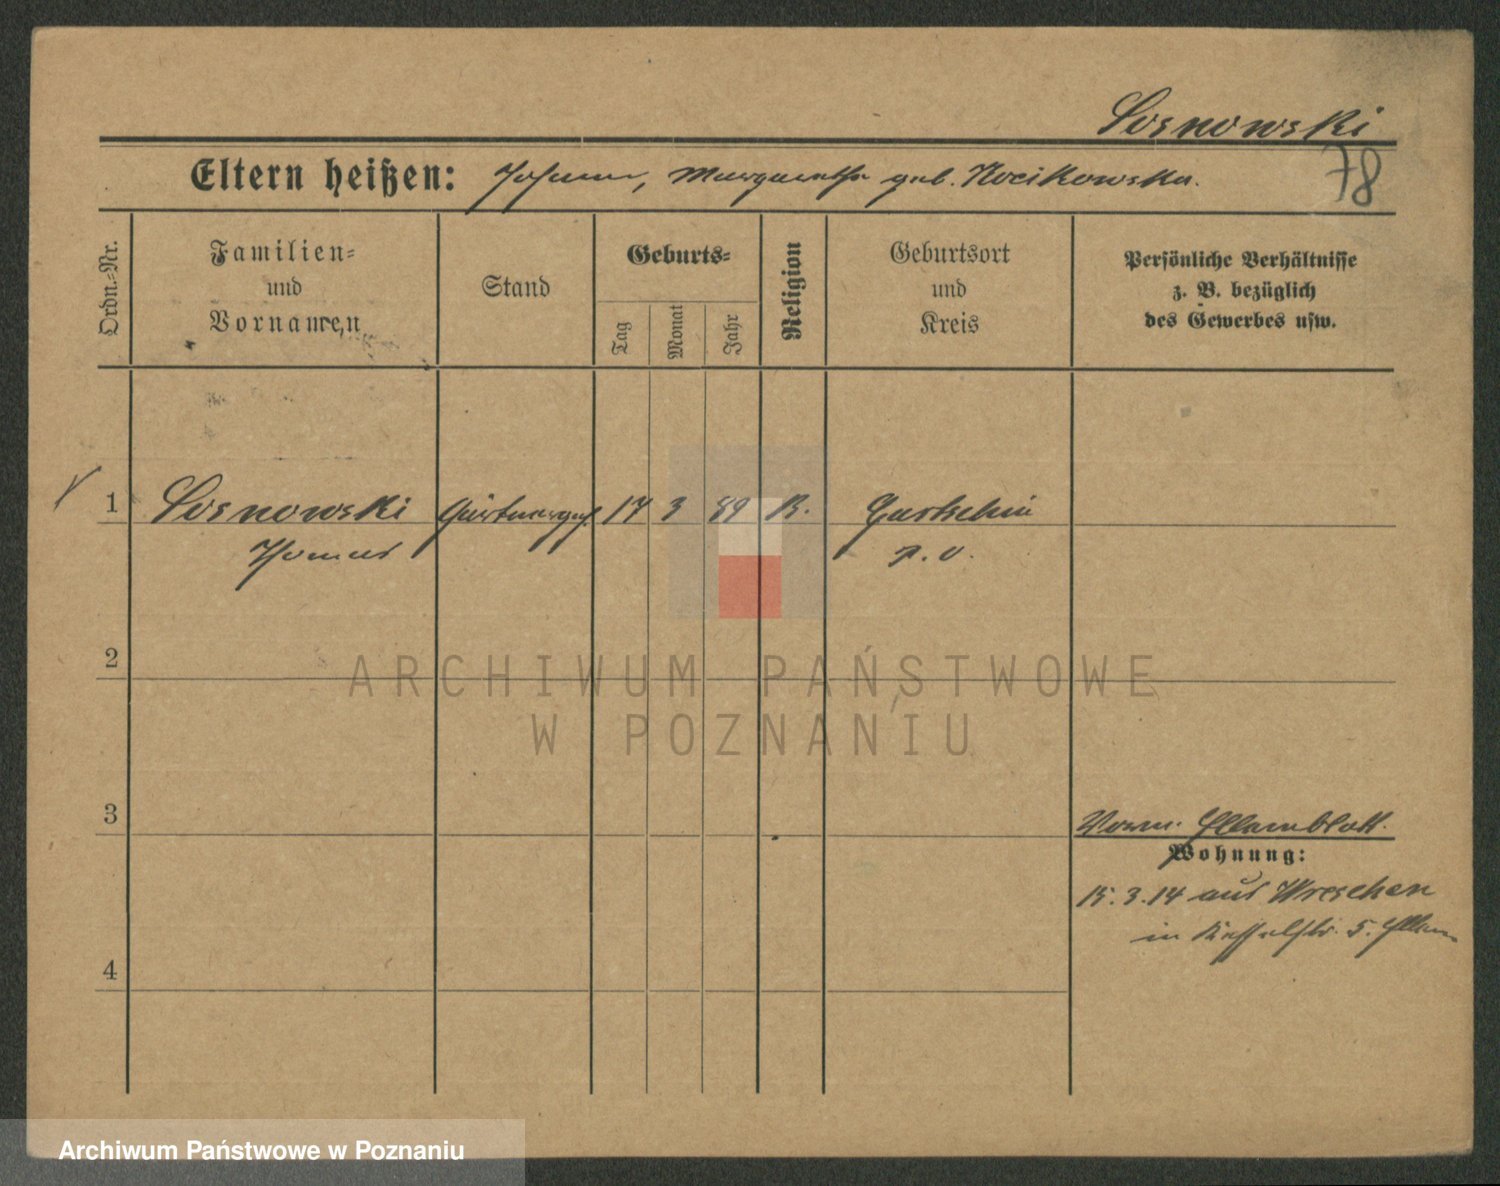 Sosnowski
Eltern heißen: Johann, Margaretha geb. Kocikowska.
78
Ordn.-Nr.
Familien-
und
Vornamen
Stand
Geburts-
Tag
Monat
Jahr
Religion
Geburtsort
und
Kreis
Persönliche Verhältnisse
z. B. bezüglich
des Gewerbes usw.
1 Sosnowski Gärtnergeh. 17 3 89 K.
Thomas p. o.
2
3
Wohnung:
15.3.14 aus Wreschen
in 5.
4
ARCHIWUM PAŃSTWOWE
W POZNANIU
Archiwum Państwowe w Poznaniu